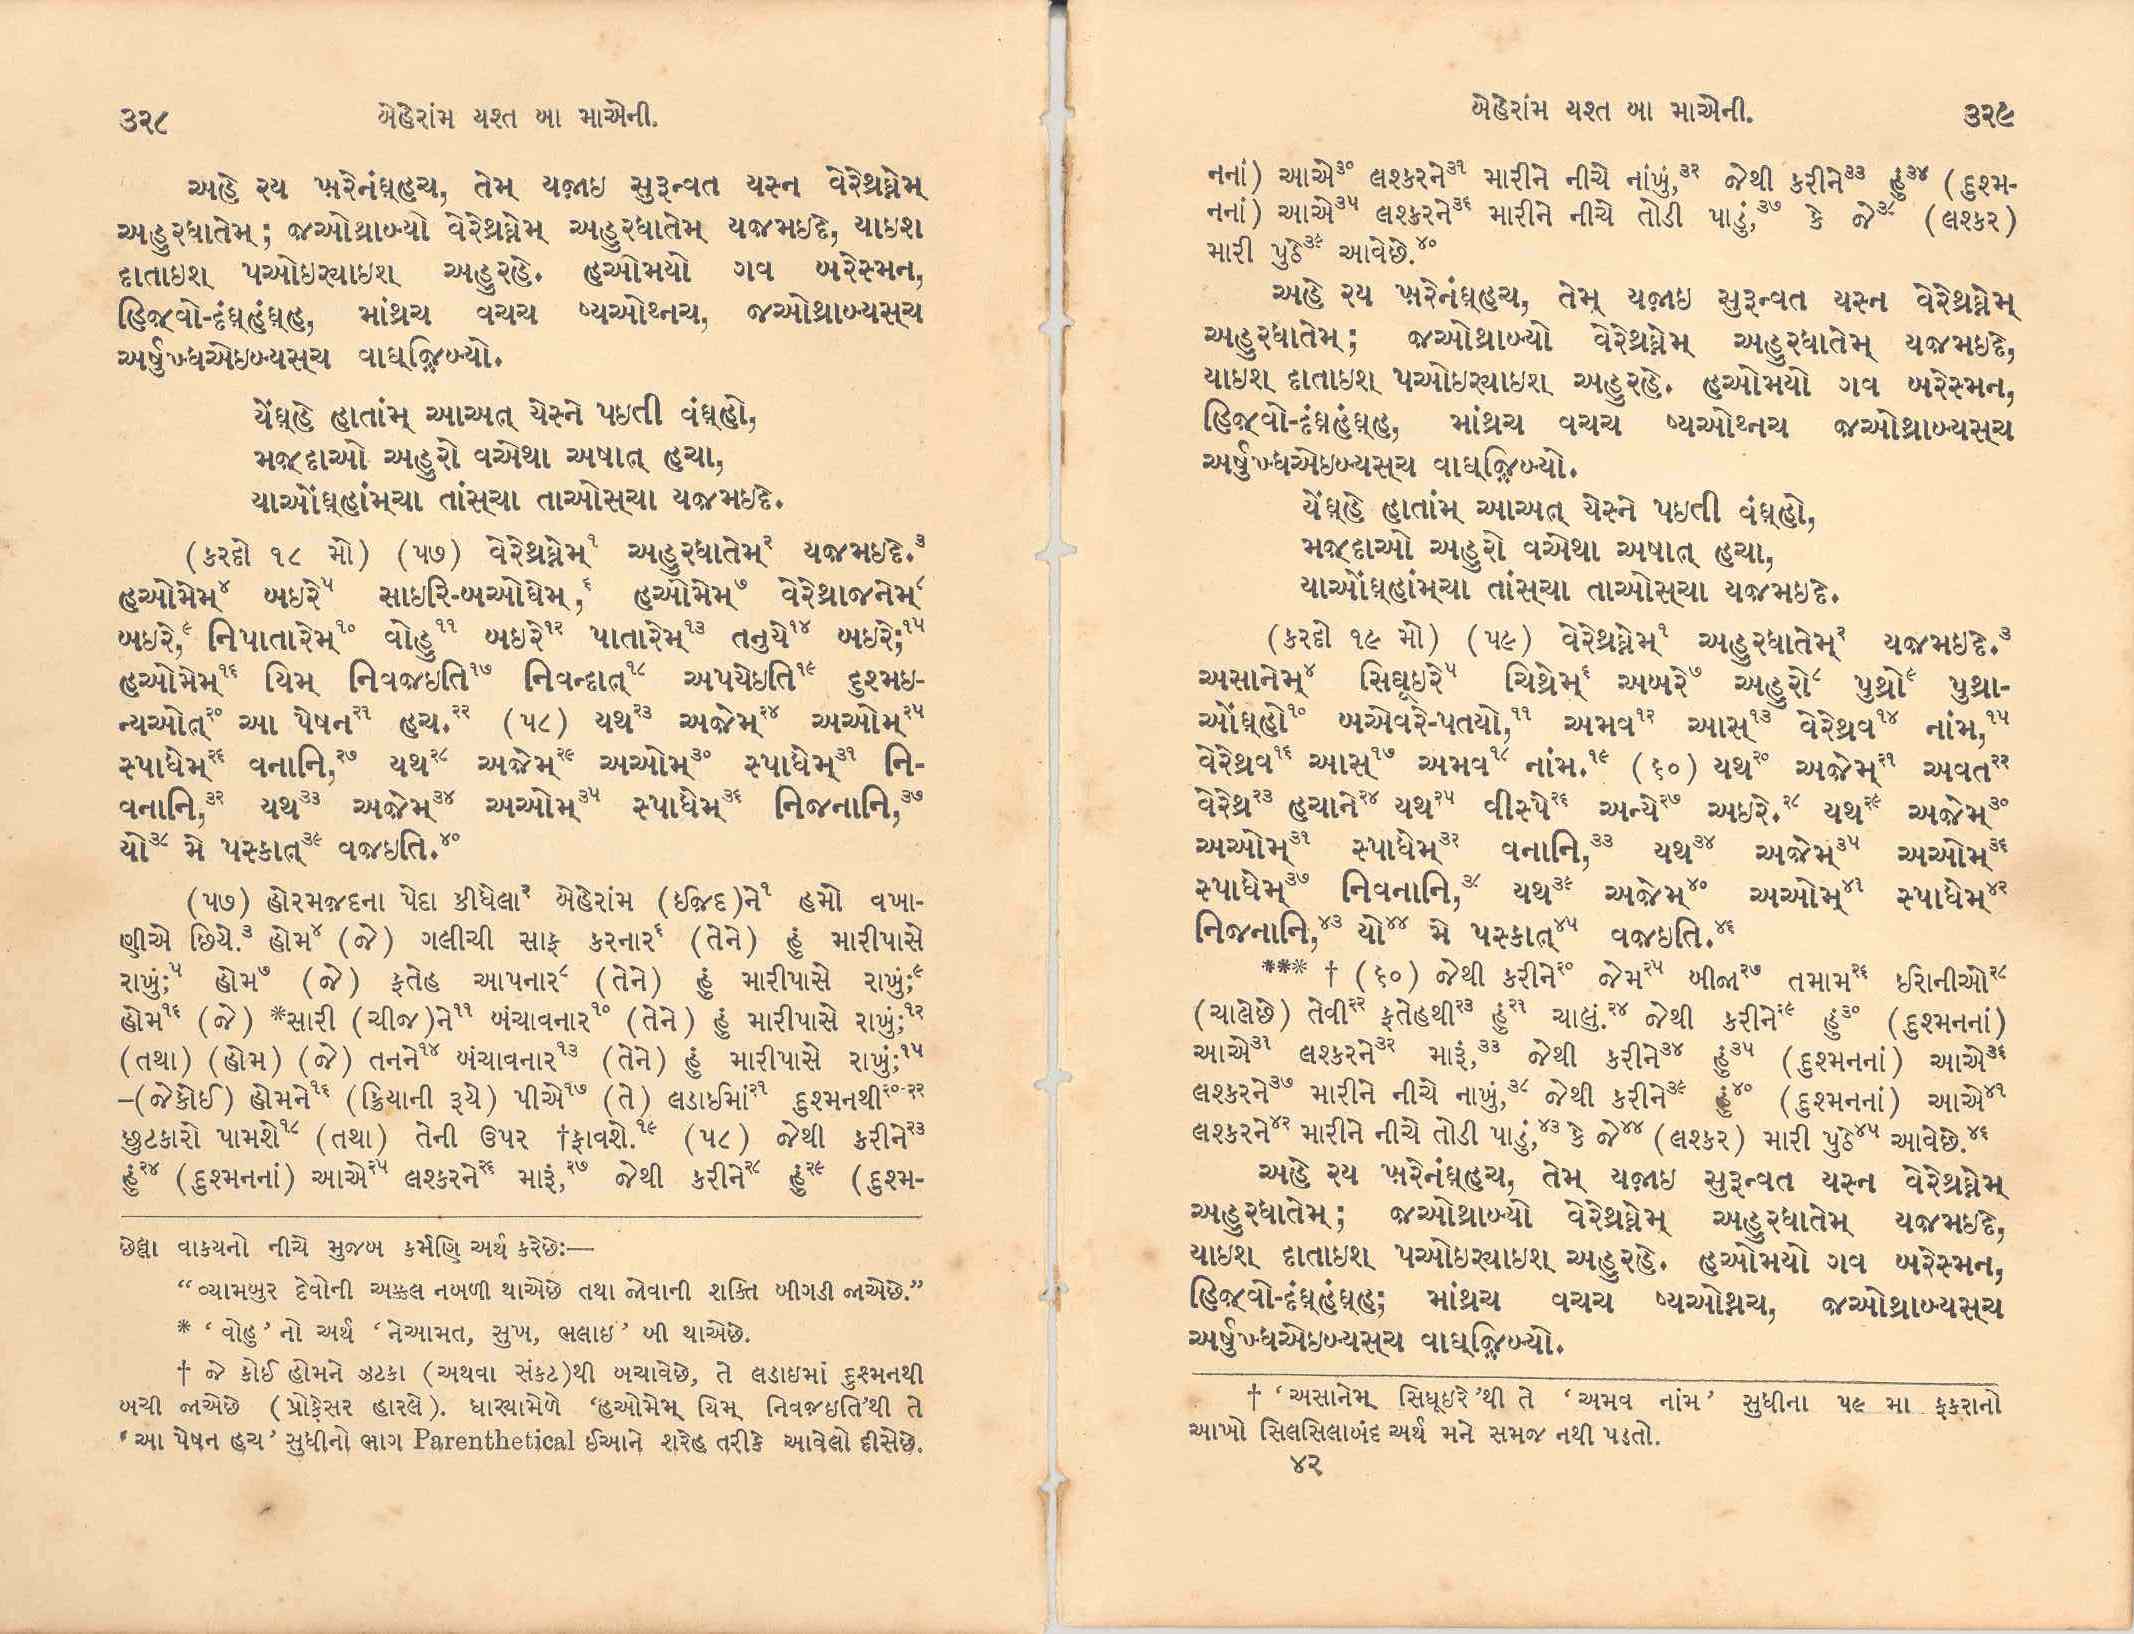 ૩૨૮ બેહેરાંમ યશ્ત બા માએની.
અહે રય ખ઼રેનંઘ઼્હચ, તેમ્ યજ઼ાઇ સુરૂન્વત યસ્ન વેરેથ્રઘ્નેમ્
અહુરધાતેમ્; જ઼ઓથ્રાબ્યો વેરેથ્રઘ્નેમ્ અહુરધાતેમ્ યજ઼મઇદે, યાઇશ
દાતાઇશ્ પઓઇરયાઇશ્ અહુરહે. હઓમયો ગવ બરેસ્મન,
હિજ઼્વો-દંઘ઼્હંઘ઼્હ, માંથ્રચ વચચ ષ્યઓથ્નચ, જ઼ઓથ્રાબ્યસ્ચ
અર્ષુખ્ધએઇબ્યસ્ચ વાઘ્જ઼િબ્યો.
યેંઘ઼્હે હાતાંમ્ આઅત્ યેસ્ને પઇતી વંઘ઼્હો,
મજ઼્દાઓ અહુરો વએથા અષાત્ હચા,
યાઓંઘ઼્હાંમ્ચા તાંસ્ચા તાઓસ્ચા યજ઼મઇદે.
(કરદો ૧૮ મો) (૫૭) વેરેથ્રઘ્નેમ્૧ અહુરધાતેમ્૨ યજ઼મઇદે.૩
હઓમેમ્૪ બઇરે૫ સાઇરિ-બઓઘેમ્,૬ હઓમેમ્૭ વેરેથ્રાજનેમ્૮
બઇરે,૯ નિપાતારેમ્૧૦ વોહુ૧૧ બઇરે૧૨ પાતારેમ્૧૩ તનુયે૧૪ બઇરે;૧૫
હઓમેમ્૧૬ યિમ્ નિવજ઼ઇતિ૧૭ નિવન્દાત્૧૮ અપયેઇતિ૧૯ દુશ્મઇ-
ન્યઓત્૨૦ આ પેષન૨૧ હચ.૨૨ (૫૮) યથ૨૩ અજ઼ેમ્૨૪ અઓમ્૨૫
સ્પાધેમ્૨૬ વનાનિ,૨૭ યથ૨૮ અજ઼ેમ્૨૯ અઓમ્૩૦ સ્પાધેમ્૩૧ નિ-
વનાનિ,૩૨ યથ૩૩ અજ઼ેમ્૩૪ અઓમ્૩૫ સ્પાધેમ્૩૬ નિજનાનિ,૩૭
યો૩૮ મે પસ્કાત્૩૯ વજ઼ઇતિ.૪૦
(૫૭) હોરમજ઼દના પેદા કીધેલા૨ બેહેરાંમ (ઈજ઼દ)ને૧ હમો વખા-
ણીએ છિયે.૩ હોમ૪ (જે) ગલીચી સાફ કરનાર૬ (તેને) હું મારીપાસે
રાખું;૫ હોમ૭ (જે) ફતેહ આપનાર૮ (તેને) હું મારીપાસે રાખું;૯
હોમ૧૬ (જે) *સારી (ચીજ)ને૧૧ બંચાવનાર૧૦ (તેને) હું મારીપાસે રાખું;૧૨
(તથા) (હોમ) (જે) તનને૧૪ બંચાવનાર૧૩ (તેને) હું મારીપાસે રાખું;૧૫
–(જેકોઈ) હોમને૧૬ (ક્રિયાની રૂયે) પીએ૧૭ (તે) લડાઈમાં૨૧ દુશ્મનથી૨૦-૨૨
છુટકારો પામશે૧૮ (તથા) તેની ઉપર †ફાવશે.૧૯ (૫૮) જેથી કરીને૨૩
હું૨૪ (દુશ્મનનાં) આએ૨૫ લશ્કરને૨૬ મારૂં,૨૭ જેથી કરીને૨૮ હું૨૯ (દુશ્મ-
છેલ્લા વાકયનો નીચે મુજબ કર્મણિ અર્થ કરેછેઃ—
“વ્યામબુર દેવોની અક્કલ નબળી થાએછે તથા જોવાની શક્તિ બીગડી જાએછે.”
* ‘વોહુ’ નો અર્થ ‘નેઆમત, સુખ, ભલાઇ’ બી થાએછે.
† જે કોઈ હોમને ઝટકા (અથવા સંકટ)થી બચાવેછે, તે લડાઇમાં દુશ્મનથી
બચી જાએછે (પ્રોફેસર હારલે). ધારયામેળે ‘હઓમેમ્ યિમ્ નિવજ઼ઇતિ’થી તે
‘આ પેષન હચ’ સુધીનો ભાગ Parenthetical ઈઆને શરેહ તરીકે આવેલો દીસેછે.
બેહેરાંમ યશ્ત બા માએની. ૩૨૯
નનાં) આએ૩૦ લશ્કરને૩૧ મારીને નીચે નાંખું,૩૨ જેથી કરીને૩૩ હું૩૪ (દુશ્મ-
નનાં) આએ૩૫ લશ્કરને૩૬ મારીને નીચે તોડી પાડું,૩૭ કે જે૩૮ (લશ્કર)
મારી પુઠે૩૯ આવેછે.૪૦
અહે રય ખ઼રેનંઘ઼્હચ, તેમ્ યજ઼ાઇ સુરૂન્વત યસ્ન વેરેથ્રઘ્નેમ્
અહુરધાતેમ્; જ઼ઓથ્રાબ્યો વેરેથ્રઘ્નેમ્ અહુરધાતેમ્ યજ઼મઇદે,
યાઇશ્ દાતાઇશ્ પઓઇરયાઇશ્ અહુરહે. હઓમયો ગવ બરેસ્મન,
હિજ઼્વો-દંઘ઼્હંઘ઼્હ, માંથ્રચ વચચ ષ્યઓથ્નચ જ઼ઓથ્રાબ્યસ્ચ
અર્ષુખ્ધએઇબ્યસ્ચ વાઘ્જ઼િબ્યો.
યેંઘ઼્હે હાતાંમ્ આઅત્ યેસ્ને પઇતી વંઘ઼્હો,
મજ઼્દાઓ અહુરો વએથા અષાત્ હચા,
યાઓંઘ઼્હાંમ્ચા તાંસ્ચા તાઓસ્ચા યજ઼મઇદે.
(કરદો ૧૯ મો) (૫૯) વેરેથ્રઘ્નેમ્૧ અહુરધાતેમ્૨ યજ઼મઇદે.૩
અસાનેમ્૪ સિઘૂઇરે૫ ચિથ્રેમ્૬ અબરે૭ અહુરો૮ પુથ્રો૯ પુથ્રા-
ઓંઘ઼્હો૧૦ બએવરે-પતયો,૧૧ અમવ૧૨ આસ્૧૩ વેરેથ્રવ૧૪ નાંમ,૧૫
વેરેથ્રવ૧૬ આસ્૧૭ અમવ૧૮ નાંમ.૧૯ (૬૦) યથ૨૦ અજ઼ેમ્૨૧ અવત૨૨
વેરેથ્ર૨૩ હચાને૨૪ યથ૨૫ વીસ્પે૨૬ અન્યે૨૭ અઇરે.૨૮ યથ૨૯ અજ઼ેમ્૩૦
અઓમ્૩૧ સ્પાધેમ્૩૨ વનાનિ,૩૩ યથ૩૪ અજ઼ેમ્૩૫ અઓમ્૩૬
સ્પાધેમ્૩૭ નિવનાનિ,૩૮ યથ૩૯ અજ઼ેમ્૪૦ અઓમ્૪૧ સ્પાધેમ્૪૨
નિજનાનિ,૪૩ યો૪૪ મે પસ્કાત્૪૫ વજ઼ઇતિ.૪૬
*** † (૬૦) જેથી કરીને૨૦ જેમ૨૫ બીજા૨૭ તમામ૨૬ ઈરાનીઓ૨૮
(ચાલેછે) તેવી૨૨ ફતેહથી૨૩ હું૨૧ ચાલું.૨૪ જેથી કરીને૨૯ હું૩૦ (દુશ્મનનાં)
આએ૩૧ લશ્કરને૩૨ મારૂં,૩૩ જેથી કરીને૩૪ હું૩૫ (દુશ્મનનાં) આએ૩૬
લશ્કરને૩૭ મારીને નીચે નાખું,૩૮ જેથી કરીને૩૯ હું૪૦ (દુશ્મનનાં) આએ૪૧
લશ્કરને૪૨ મારીને નીચે તોડી પાડું,૪૩ કે જે૪૪ (લશ્કર) મારી પુઠે૪૫ આવેછે.૪૬
અહે રય ખ઼રેનંઘ઼્હચ, તેમ્ યજ઼ાઇ સુરૂન્વત યસ્ન વેરેથ્રઘ્નેમ્
અહુરધાતેમ્; જ઼ઓથ્રાબ્યો વેરેથ્રઘ્નેમ્ અહુરધાતેમ્ યજ઼મઇદે,
યાઇશ્ દાતાઇશ્ પઓઇરયાઇશ્ અહુરહે. હઓમયો ગવ બરેસ્મન,
હિજ઼્વો-દંઘ઼્હંઘ઼્હ; માંથ્રચ વચચ ષ્યઓથ્નચ, જ઼ઓથ્રાબ્યસ્ચ
અર્ષુખ્ધએઇબ્યસ્ચ વાઘ્જ઼િબ્યો.
† ‘અસાનેમ્ સિઘૂઇરે’થી તે ‘અમવ નાંમ’ સુધીના ૫૯ મા ફકરાનો
આખો સિલસિલાબંદ અર્થ મને સમજ નથી પડતો.
૪૨